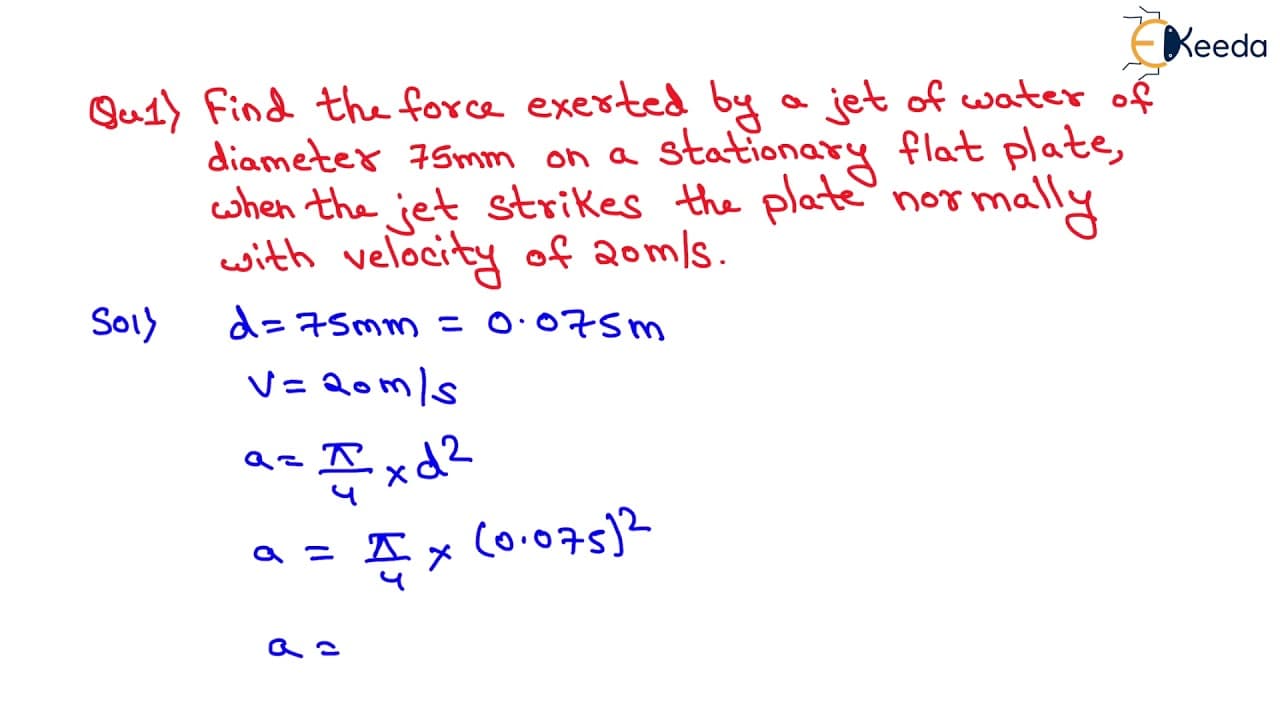 EKeeda
Qu1) Find the force exerted by a jet of water of
diameter 75mm on a stationary flat plate,
when the jet strikes the plate normally
with velocity of 20m/s.
Sol) d=75mm = 0.075m
V=20m/s
a= π/4 ×d²
a = π/4 × (0.075)²
a =